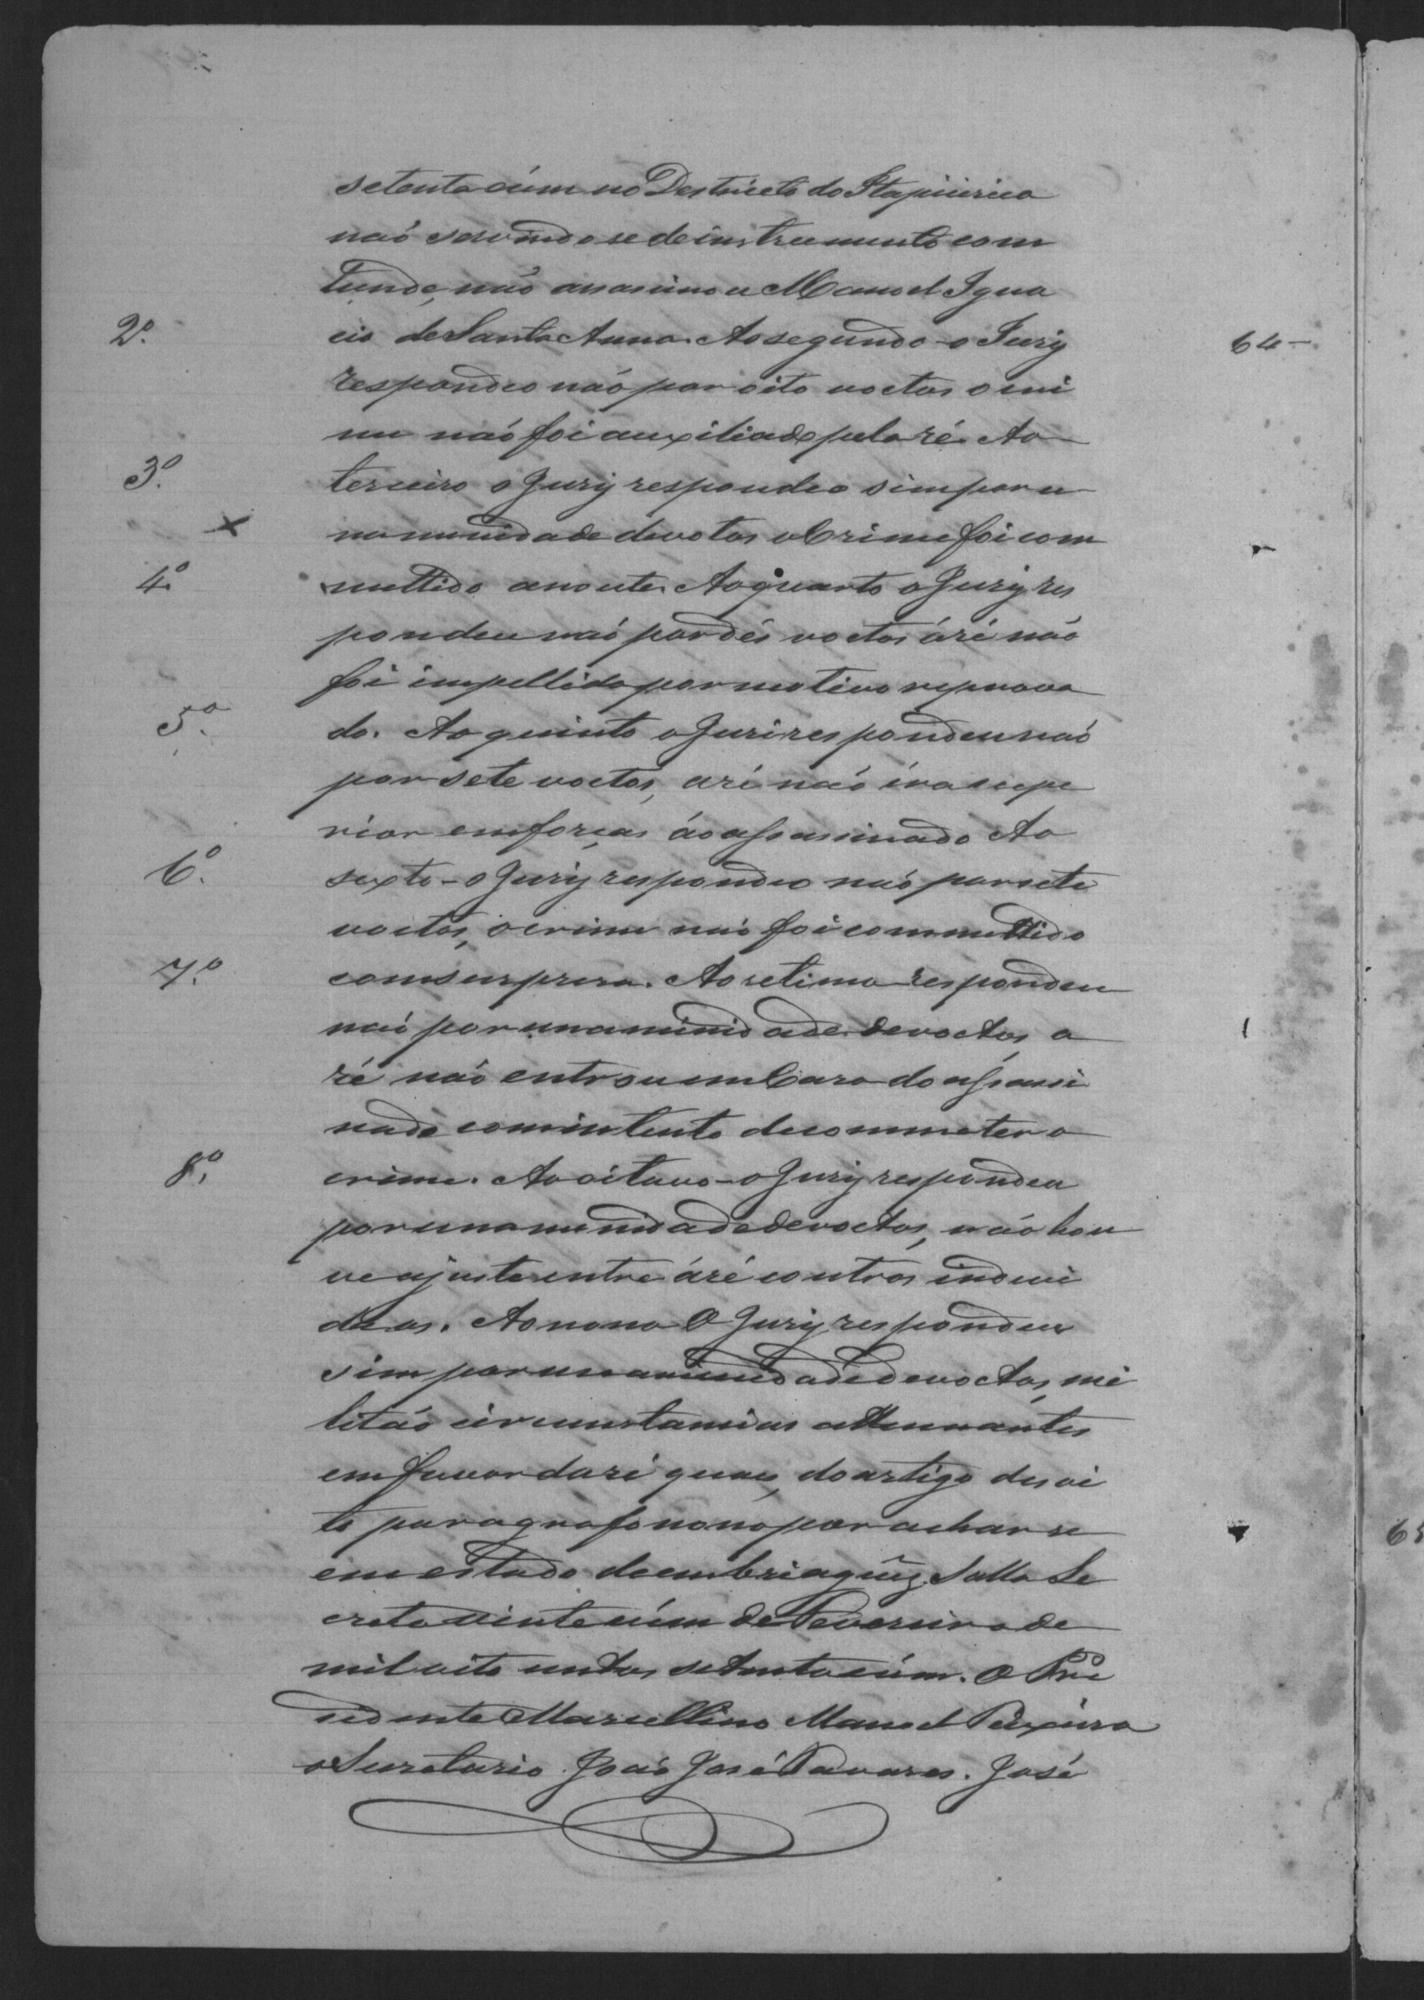 setenta e úm no Destricto do Itapicirica
naó servindo se de instrumento com
tunde, naó assassinou Manoel Igna
2º. cio de Santa Anna. Ao segundo - o Jury
64 -
respondeo naó por oito voctos o cri
me naó foi auxiliado pela ré. Ao
3º. terceiro o Jury respondeo sim por u
x nanimidade de votos o Crime foi com
4º. mettido a noute. Ao quarto o Jury res
pondeu naó por dés voctos á ré não
foi impellida por motivo reprova
5º. do. Ao quinto o Juri respondeu naó
por sete voctos, a ré naó éra supe
rior em forças áo assassinado Ao
6º. sexto - o Jury respondeo naó por sete
voctos, o crime naó foi commettido
7º. com surpresa. Ao setimo respondeu
naó por unanimidade de voctos a
ré não entrou em Casa do assassi
nado com intento de commeter o
8º. crime. Ao oitavo - o Jury respondeu
por unanimidade de voctos, não hou
ve ajuste entre á ré e outros indevi
duos. Ao nono O Jury respondeu
sim por unanimidade de voctos, mi
litáo circunstancias attenuantes
em favor da ré quaes, do artigo desoi
to paragrafo nono por achar se
65
em estado de embriaguêz. Salla Se
creta vinte e úm de Fevereiro de
mil oito centos setenta e úm. O Pre
sidente Marcellino Manoel Teixeira
o Secretario João José Tavares. José